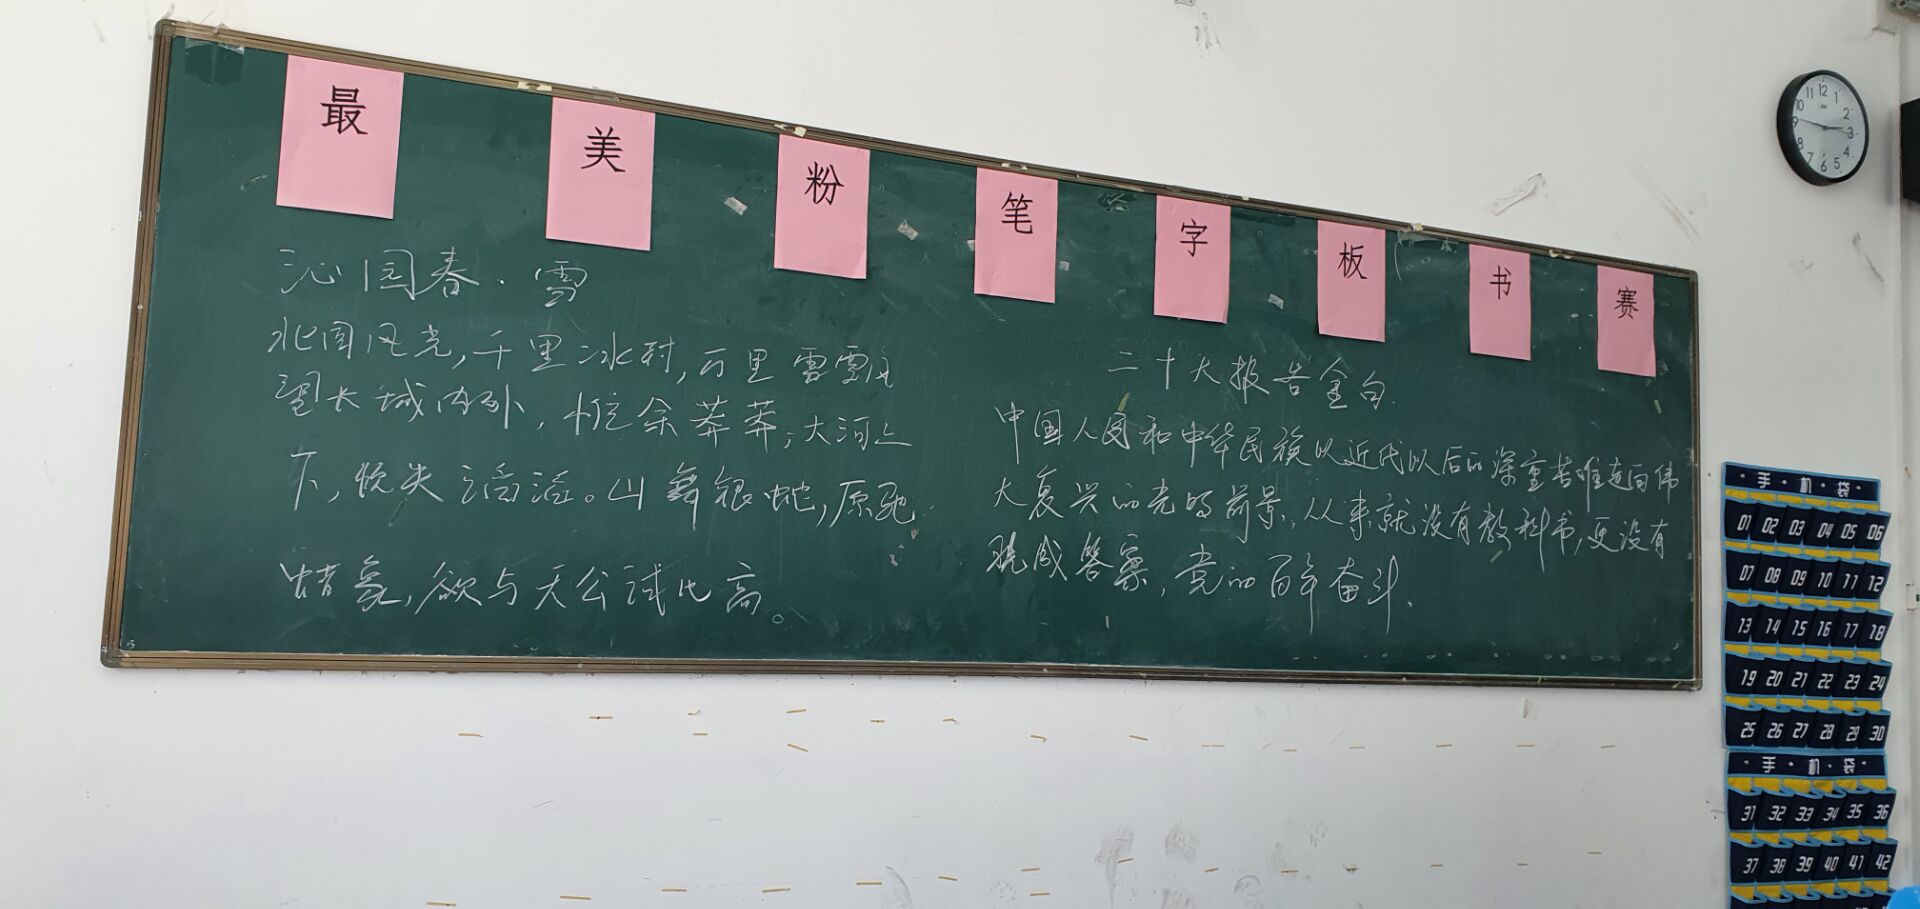 最美粉笔字板书赛
沁园春·雪
北国风光,千里冰封,万里雪飘
望长城内外,惟余莽莽;大河上
下,顿失滔滔。山舞银蛇,原驰
蜡象,欲与天公试比高。
二十大报告金句
中国人民和中华民族从近代以后的深重苦难走向伟
大复兴的光明前景,从来就没有教科书,更没有
现成答案,党的百年奋斗.
12 1 2 3 4 5 6 7 8 9 10 11
·手·机·袋·
01 02 03 04 05 06
07 08 09 10 11 12
13 14 15 16 17 18
19 20 21 22 23 24
25 26 27 28 29 30
·手·机·袋·
31 32 33 34 35 36
37 38 39 40 41 42